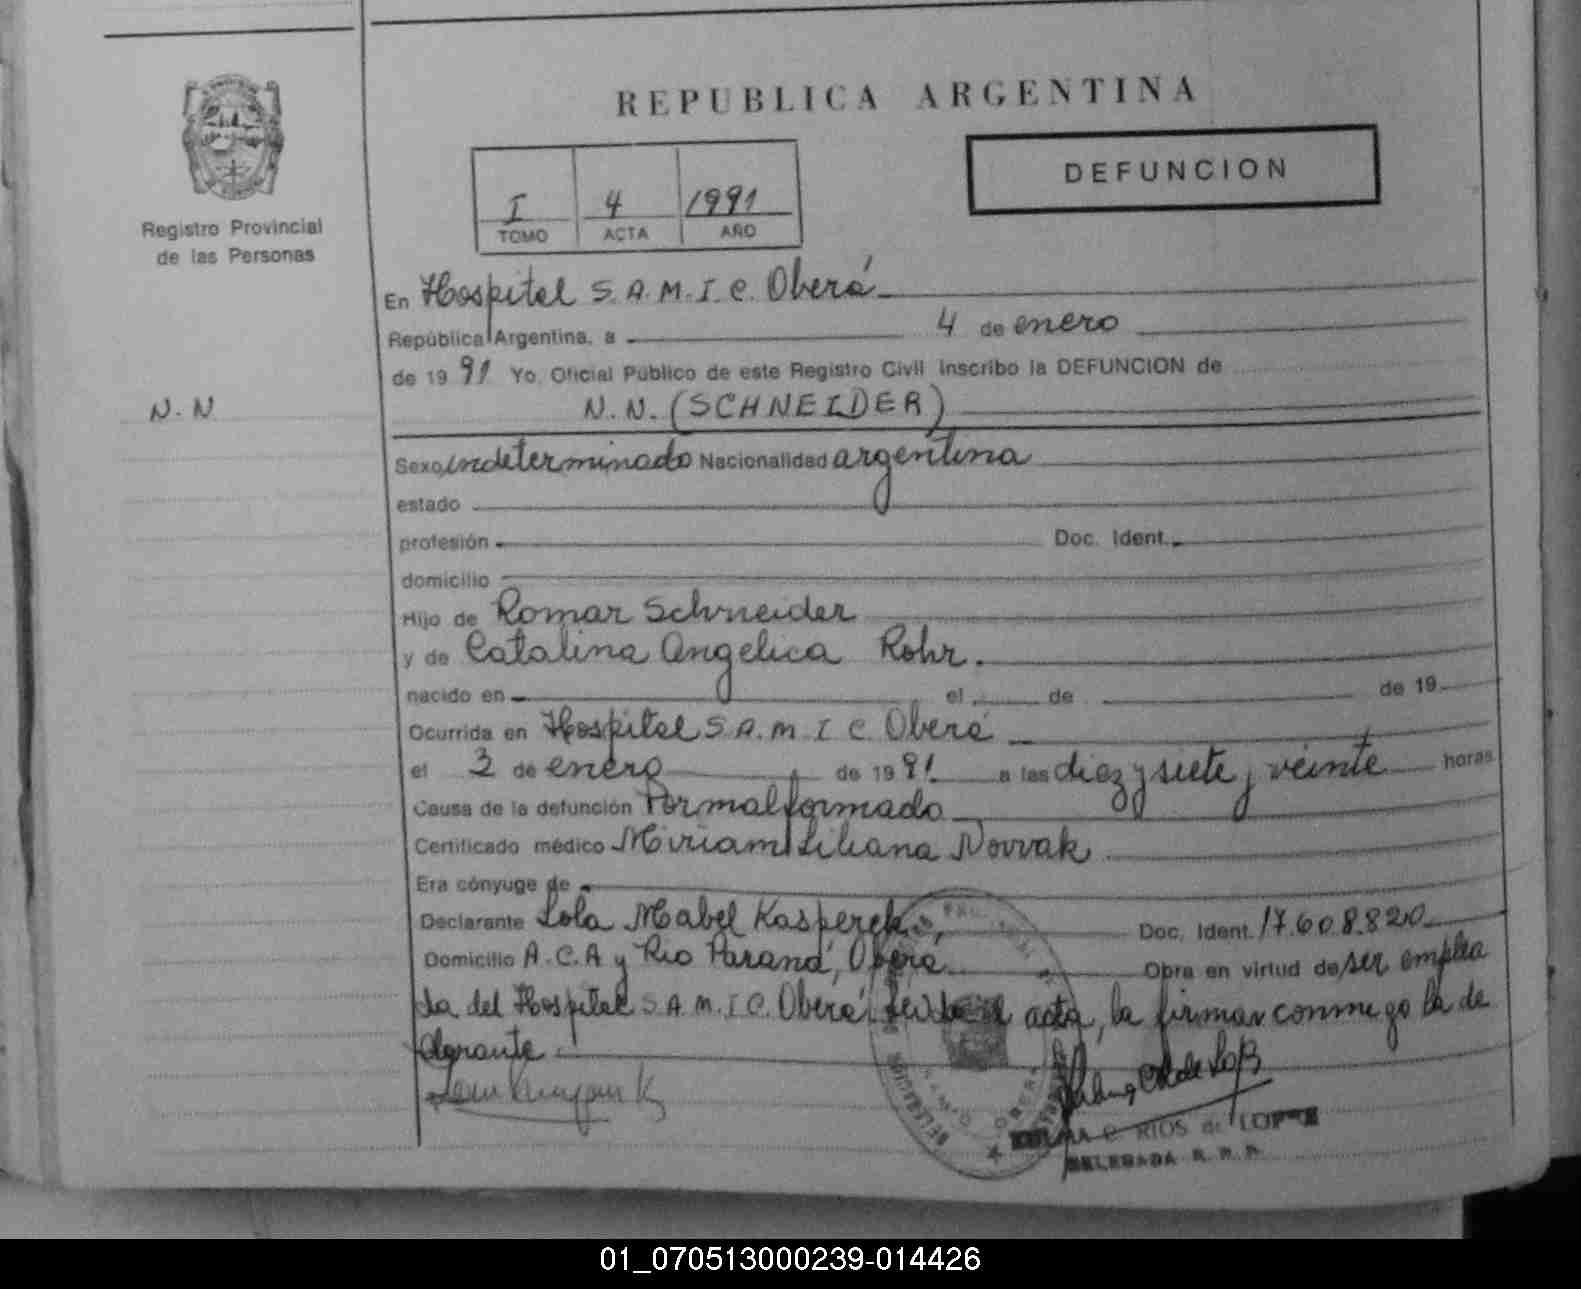 REPUBLICA ARGENTINA
DEFUNCION
I 4 1991
TOMO ACTA AÑO
Registro Provincial
de las Personas
En Hospital S.A.M.I.C. Oberá
República Argentina, a 4 de enero
de 1991 Yo, Oficial Público de este Registro Civil inscribo la DEFUNCION de
N.N N.N. (SCHNEIDER)
Sexo indeterminado Nacionalidad argentina
estado
profesión Doc. Ident.
domicilio
Hijo de Romar Schneider
y de Catalina Angelica Rohr.
nacido en el de de 19
Ocurrida en Hospital S.A.M.I C. Oberá
el 3 de enero de 1991 a las diez y siete y veinte horas
Causa de la defunción Pormalformado
Certificado médico Miriam Liliana Novvak
Era cónyuge de
Declarante Lola Mabel Kasperek, Doc. Ident. 17.608.820
Domicilio A.C.A y Rio Paraná, Oberá Obra en virtud de ser emplea
da del Hospital S.A.M.I C. Oberá. acta, la firmar conmigo la de
clarante
RIOS de LOPEZ
DELEGADA R. P. P.
01_070513000239-014426